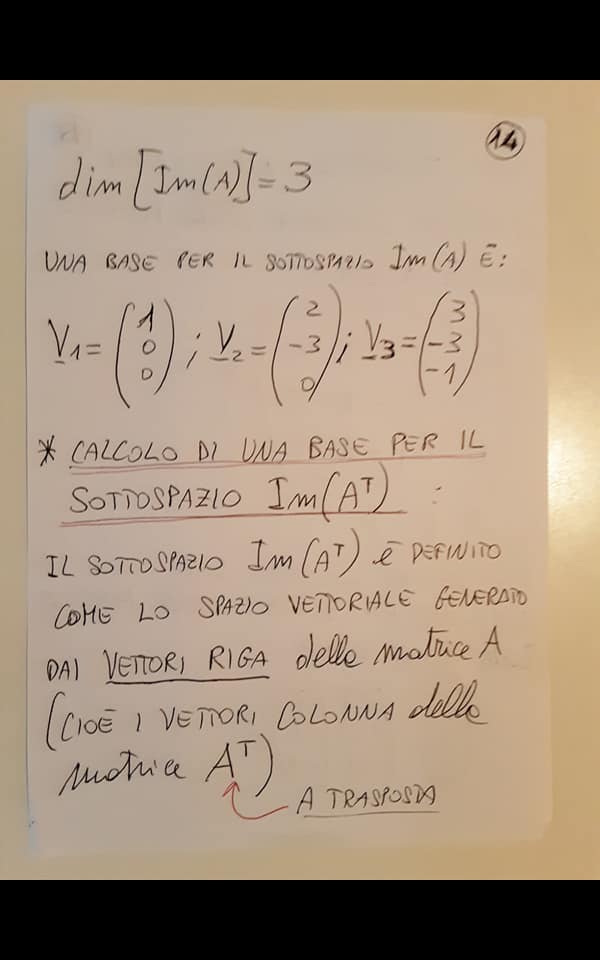 14
dim [Im(A)] = 3
UNA BASE PER IL SOTTOSPAZIO Im(A) È:
V1 = (1 0 0) ; V2 = (2 -3 0) ; V3 = (3 -3 -1)
* CALCOLO DI UNA BASE PER IL
SOTTOSPAZIO Im(Aᵀ) :
IL SOTTOSPAZIO Im(Aᵀ) È DEFINITO
COME LO SPAZIO VETTORIALE GENERATO
DAI VETTORI RIGA della matrice A
(CIOÈ I VETTORI COLONNA della
matrice Aᵀ)
A TRASPOSTA